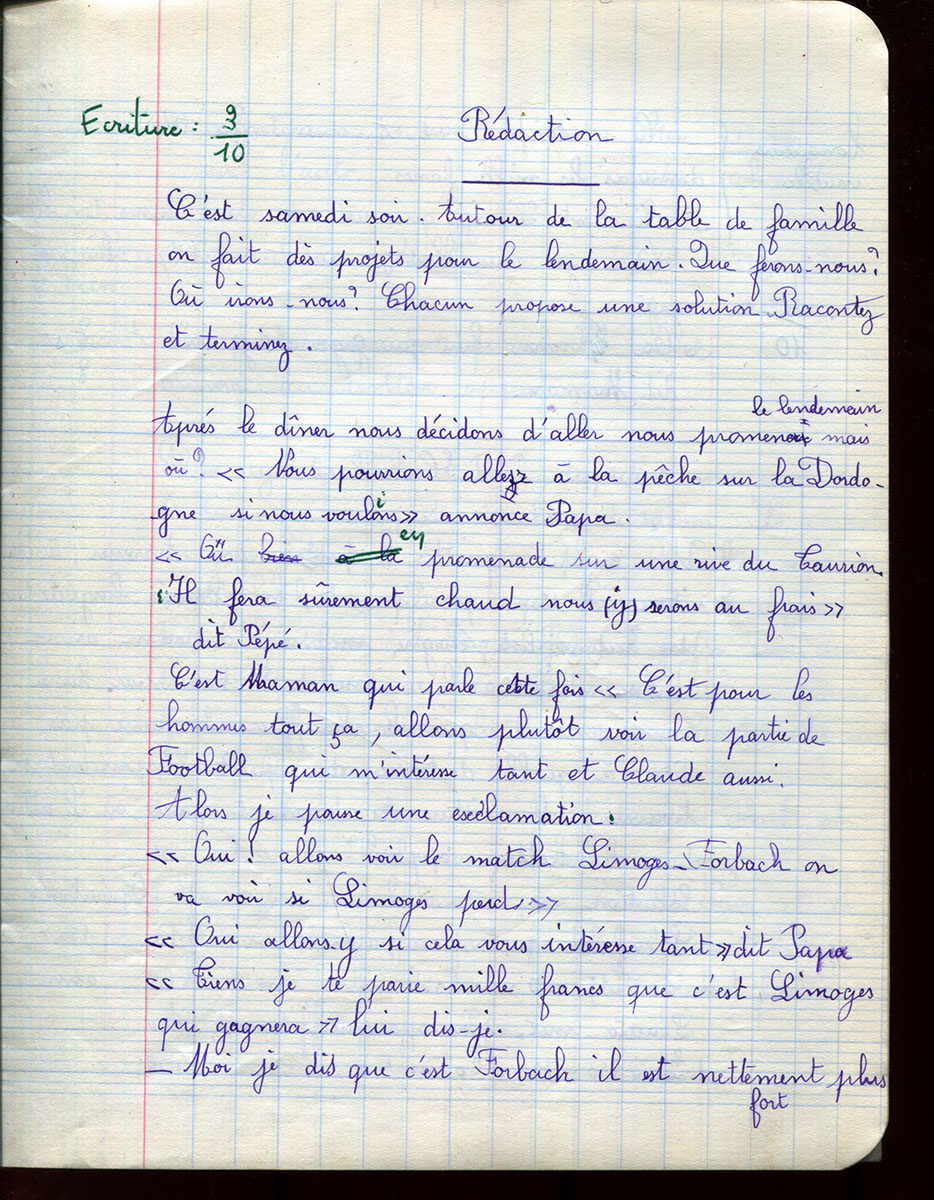 Ecriture : 3/10
Rédaction
C'est samedi soir. Autour de la table de famille
on fait dès projets pour le lendemain. Que ferons-nous?
Où irons-nous? Chacun propose une solution Racontez
et terminez.
le lendemain
Après le dîner nous décidons d'aller nous promener mais
où? << Nous pourrions aller à la pêche sur la Dordo-
-gne si nous voulions >> annonce Papa.
<< Où bien à la en promenade sur une rive du Taurion.
Il fera sûrement chaud nous (y) serons au frais >>
dit Pépé.
C'est Maman qui parle cette fois << C'est pour les
hommes tout ça, allons plutôt voir la partie de
Football qui m'intéresse tant et Claude aussi.
Alors je pousse une exclamation :
<< Oui ! allons voir le match Limoges-Forbach on
va voir si Limoges perd >>
<< Oui allons-y si cela vous intéresse tant >> dit Papa
<< Tiens je te parie mille francs que c'est Limoges
qui gagnera >> lui dis-je.
— Moi je dis que c'est Forbach il est nettement plus
fort